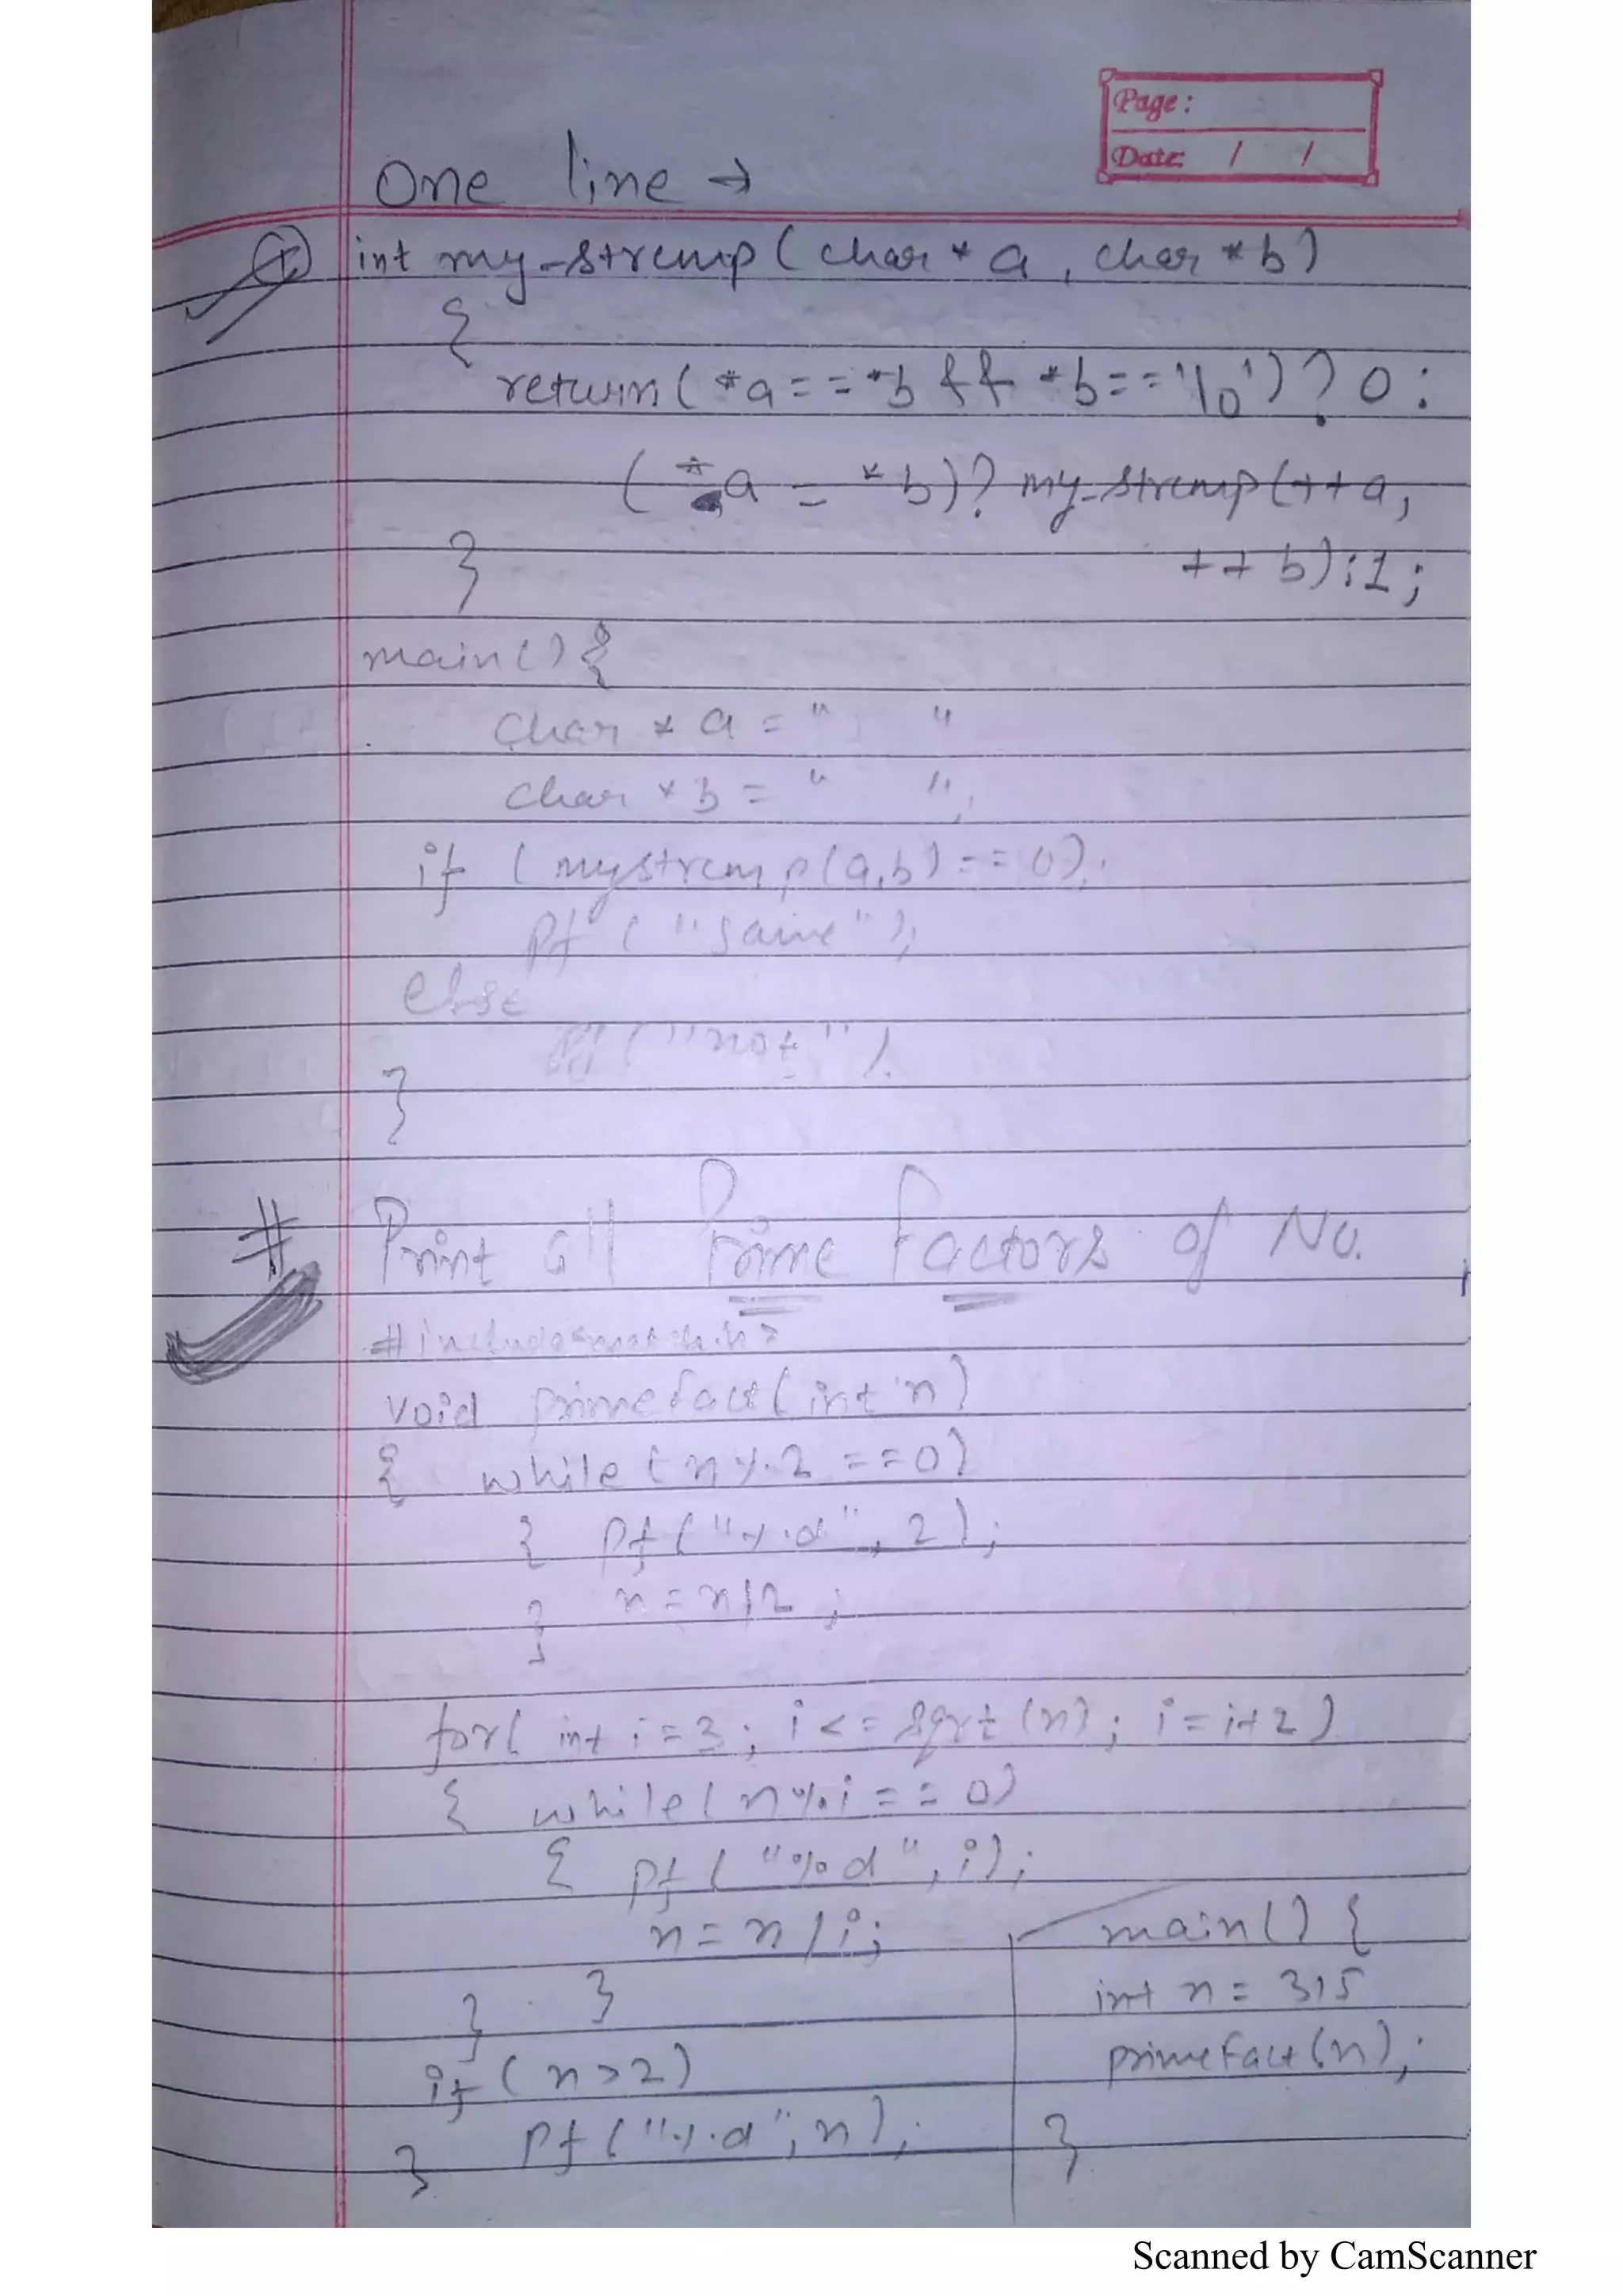 Page:
Date: / /
One line →
int my-strcmp ( char * a , char * b )
{
return ( *a == *b && *b == '\0' ) ? 0 :
( *a = *b ) ? my-strcmp ( ++a,
++ b) : 1 ;
}
main() {
char * a = " "
char * b = " ";
if ( mystrcmp(a,b) == 0);
Pf ( "same" );
else
Pf ("not" );
}
# Print all Prime Factors of No.
#include<math.h>
void primefact( int n)
{ while ( n % 2 == 0)
{ Pf ( "%d" , 2 );
n = n/2 ;
}
for( int i = 3 ; i <= sqrt (n) ; i = i+2 )
{ while( n%i == 0)
{ Pf ( "%d" , i) ;
n = n / i ;
} }
if ( n > 2 )
Pf ( "%d", n) ;
}
main() {
int n = 315
primefact(n) ;
}
Scanned by CamScanner